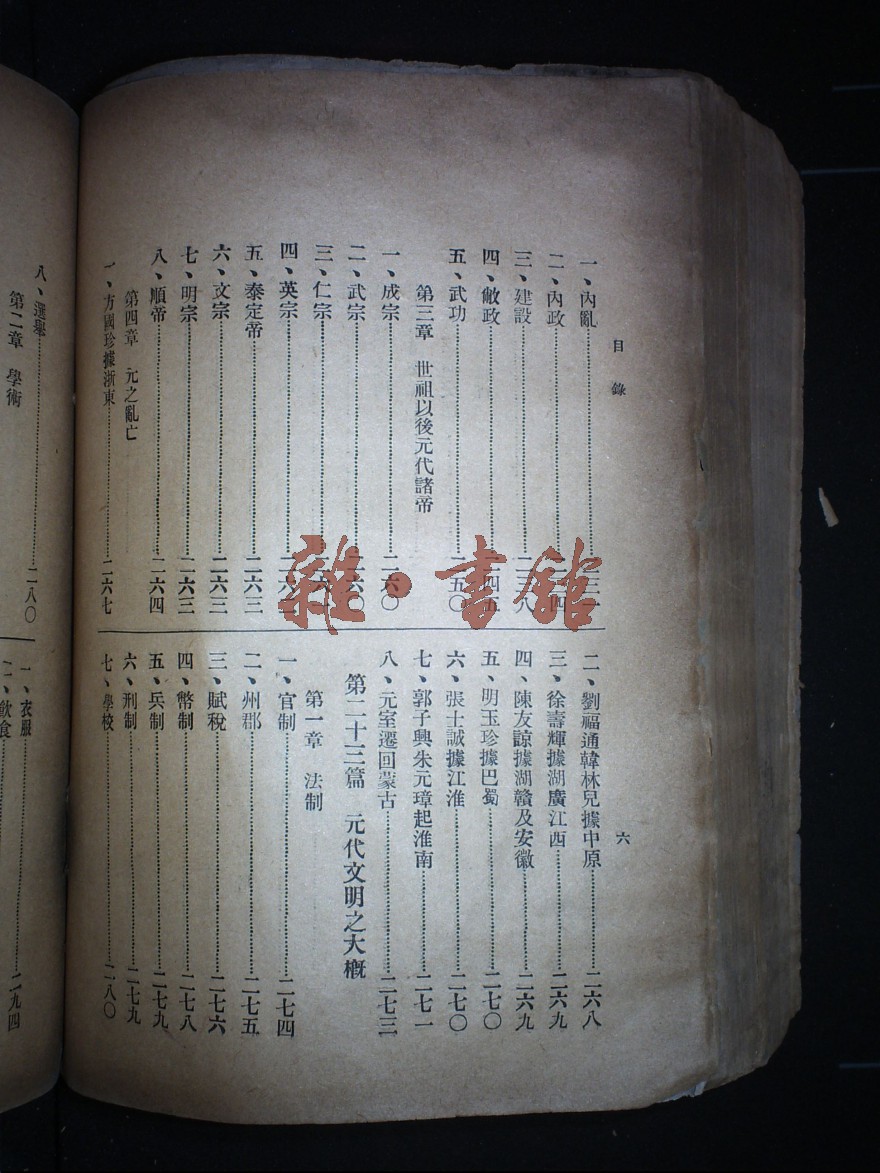 目錄
六
一、內亂……二三一
二、內政……二三四
三、建設……二三八
四、敝政……二四五
五、武功……二五〇
第三章 世祖以後元代諸帝
一、成宗……二六〇
二、武宗……二六〇
三、仁宗……二六
四、英宗……二六
五、泰定帝……二六三
六、文宗……二六三
七、明宗……二六三
八、順帝……二六四
第四章 元之亂亡
一、方國珍據浙東……二六七
二、劉福通韓林兒據中原……二六八
三、徐壽輝據湖廣江西……二六九
四、陳友諒據湖贛及安徽……二六九
五、明玉珍據巴蜀……二七〇
六、張士誠據江淮……二七〇
七、郭子興朱元璋起淮南……二七一
八、元室遷回蒙古……二七三
第二十三篇 元代文明之大概
第一章 法制
一、官制……二七四
二、州郡……二七五
三、賦稅……二七六
四、幣制……二七八
五、兵制……二七九
六、刑制……二七九
七、學校……二八〇
八、選舉……二八〇
第二章 學術
一、衣服……二九四
二、飲食
雜·書館